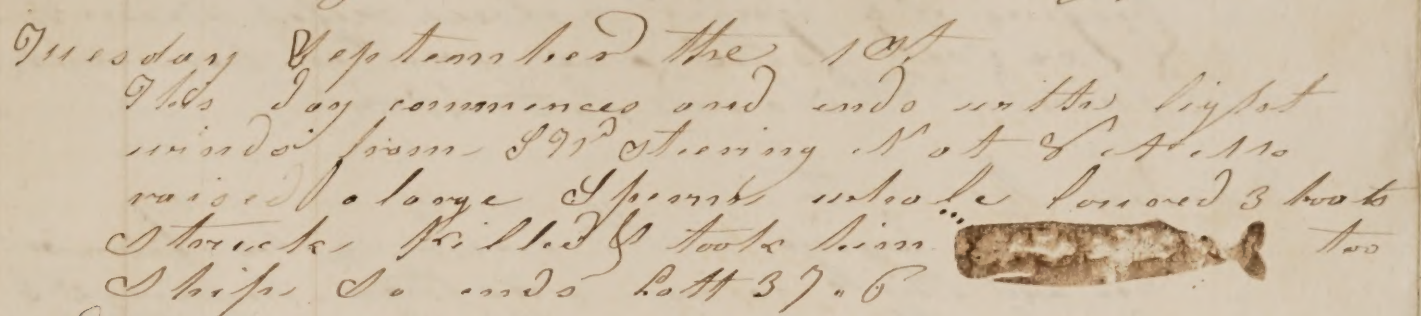 Tuesday September the 1st
This day commences and ends with light
winds from SWd Steering N at 8 A M
raised a large Sperm whale lowered 3 boats
Struck Killed & took him too
Ship So ends Latt 37.. 6